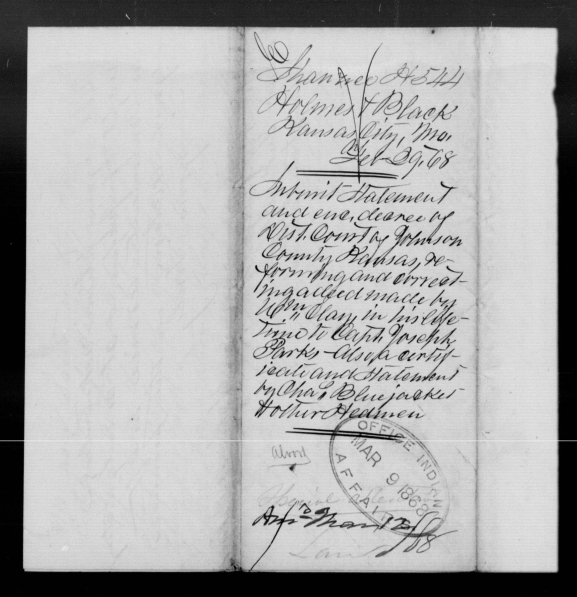 Shawnee H544
Holmes & Black
Kansas City, Mo.
Feb 29, 68
Submit Statement
and enc. decree by
Dist. Court of Johnson
County Kansas, re-
forming and correct-
ing a deed made by
Wm Clay, in his life-
time to Capt. Joseph
Parks - Also a certif-
icate and Statement
by Chas Bluejacket
& other Headmen
OFFICE INDIAN AFFAIRS
MAR 9 1868
Ansd Mar 12/68
Land